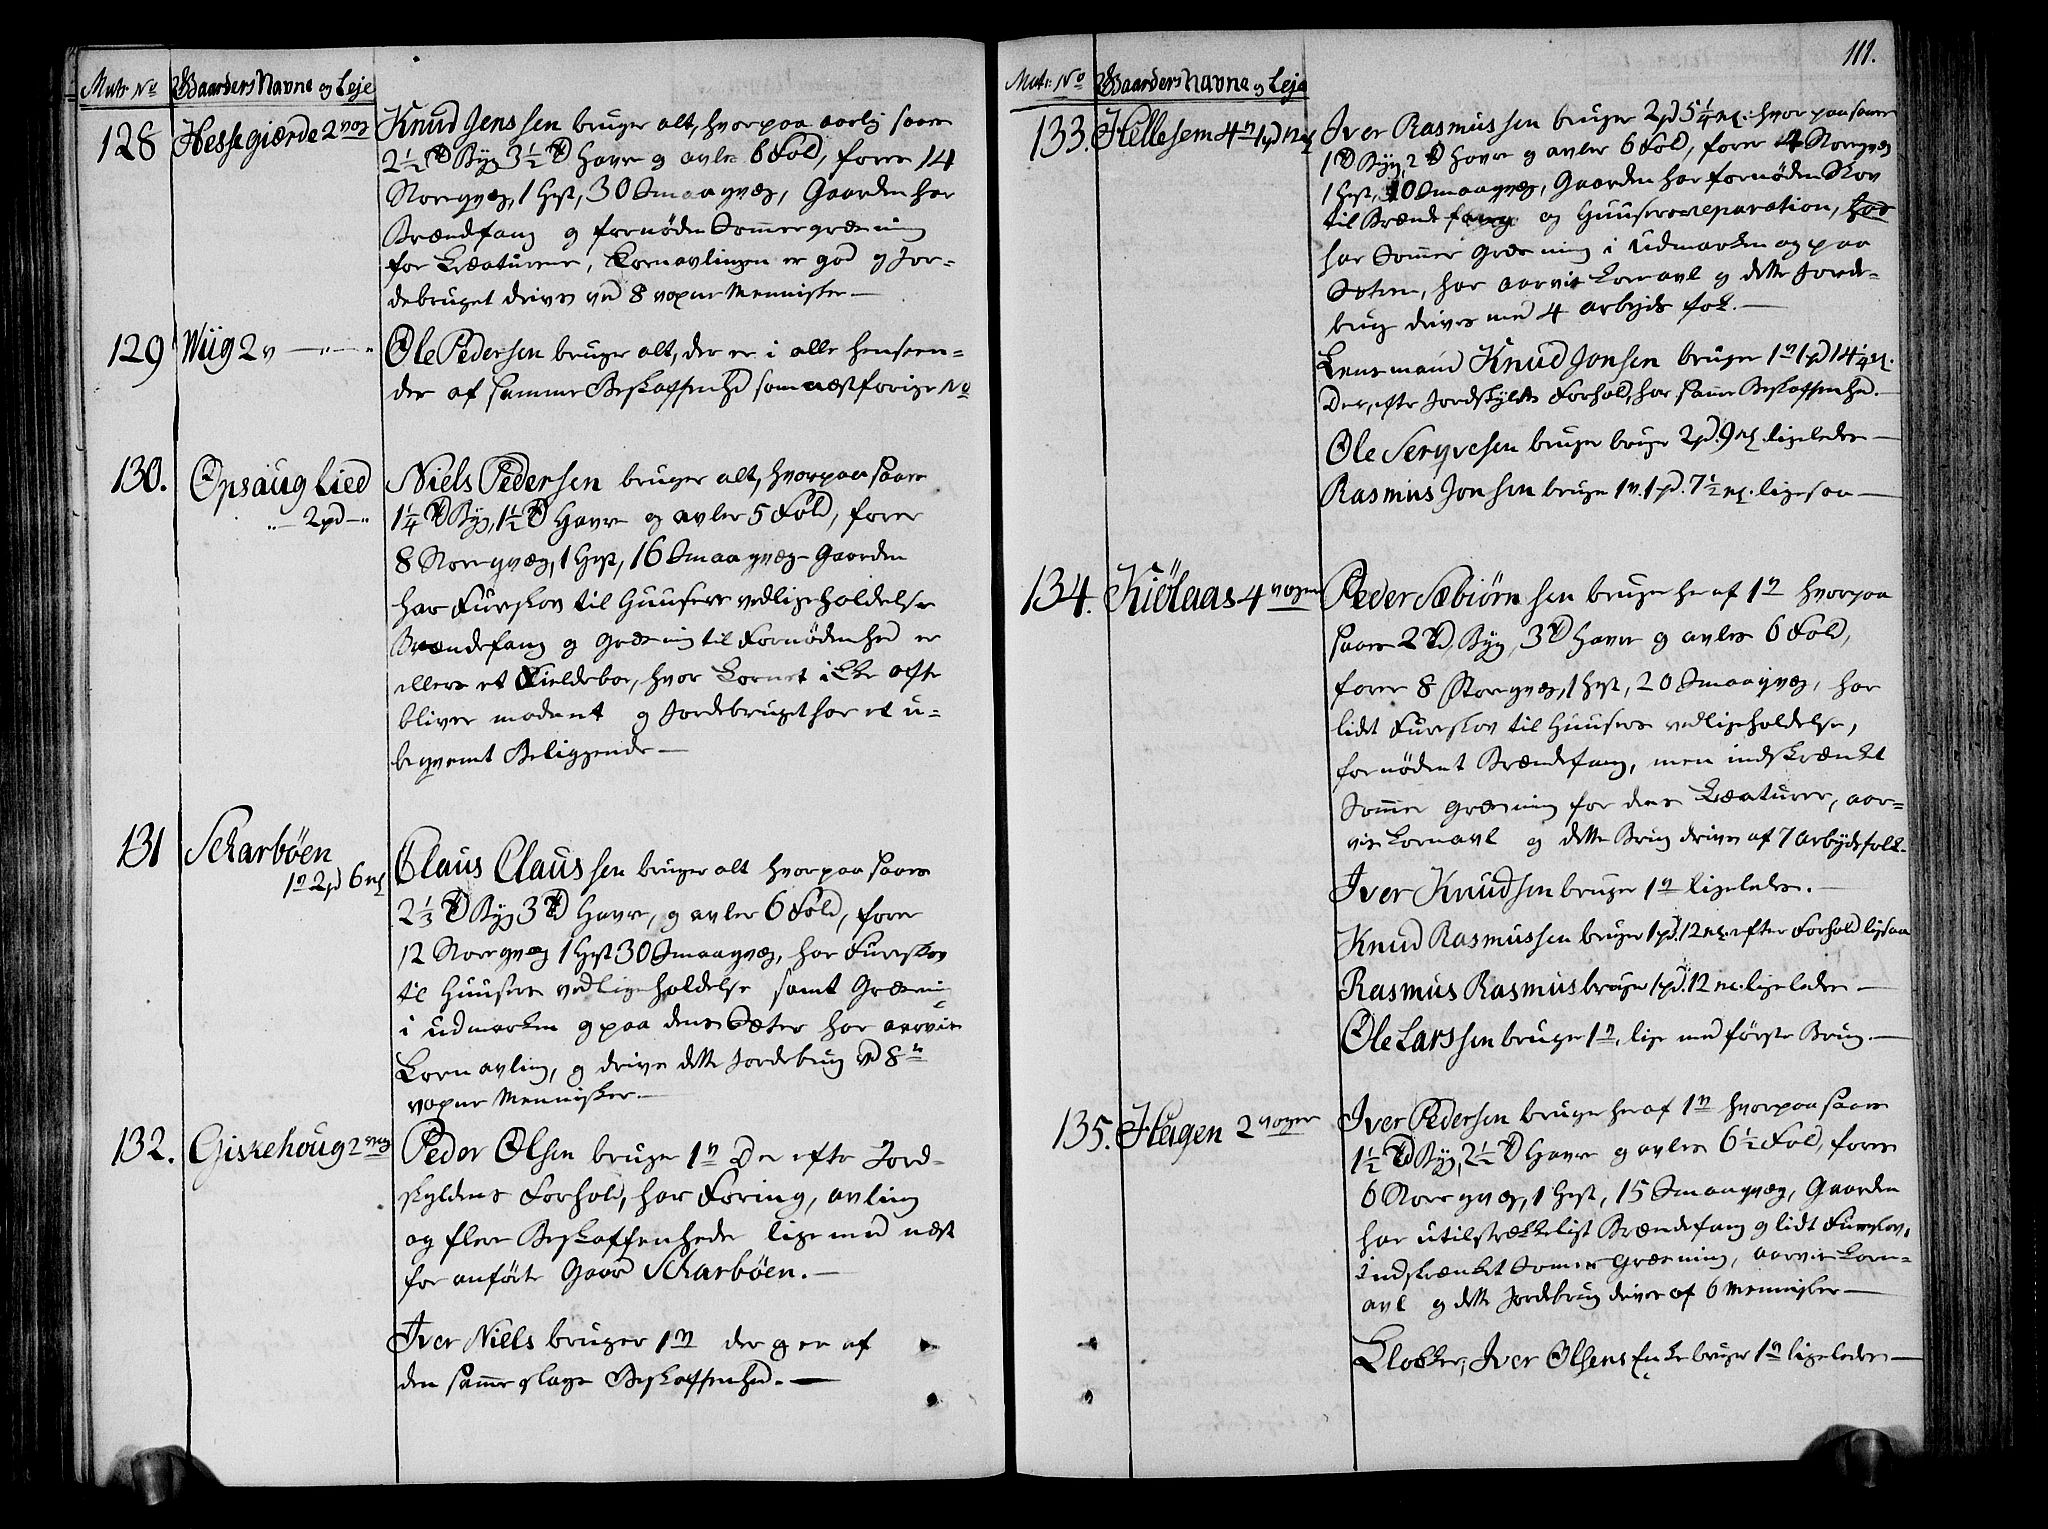 Matr. No Gaarders Navne og Leje
128 Hessegiærde 2 vog
Knud Jenssen bruger alt, hvorpaa aarlig saaes
2½ Td Byg 3½ Td Havre og avles 6 Fold, foder 14
Storeqvæg, 1 Hest, 30 Smaaqvæg, Gaarden har
Brændefang og fornøden Sommergræsning
for Creaturene, Kornavlingen er god og Jor-
debruget drives ved 8 voxne Mennisker
129 Wiig 2 v
Ole Pedersen bruger alt, der er i alle Henseen-
der af samme Beskaffenhed som næstforige No
130. Opsaug Lied
2 pd
Niels Pedersen bruger alt, hvorpaa saaes
1¼ Td Byg, 1½ Td Havre og avler 5 Fold, foder
8 Storeqvæg, 1 Hest, 16 Smaaqvæg Gaarden
har Fureskov til Huusenes vedligeholdelse
Brændefang og Græsning til Fornødenhed er
ellers et Fieldeboe, hvor Kornet ikke ofte
bliver modent og Jordebruget har et u-
beqvemt Beliggende
131 Scharbøen
1 v 2 pd 6 mk
Claus Claussen bruger alt hvorpaa saaes
2⅓ Td Byg 3 Td Havre, og avler 6 Fold, foder
12 Storeqvæg 1 Hest 30 Smaaqvæg, har Fureskov
til Huusenes vedligeholdelse samt Græsning
i udmarken og paa dens Sæter har aarvis
Kornavling, og drives dette Jordebrug ved 8te
voxne Mennisker.
132. Giskehoug 2 vog
Peder Olsen bruger 1 v Der efter Jord-
skyldens Forhold, har Foring, avling
og flere Beskaffenheder lige med næst
for anførte Gaard Scharbøen.
Iver Niels bruger 1 v der og er af
den samme slags Beskaffenhed.
111.
Matr. No Gaarders Navne og Leje
133. Hellesem 4 v 1 pd 12 mk
Iver Rasmussen bruger 2 pd 5¼ mk. hvorpaa saaes
1 Td Byg, 2 Td Havre og avler 6 Fold, foder 4 Storeqvæg
1 Hest, 10 Smaaqvæg, Gaarden har fornøden Skov
til Brændefang og Huusenes reparation, har
har Sommer Græsning i Udmarken og paa
Sæteren, har aarvis Kornavl og dette Jorde-
brug drives med 4 arbejds folk.
Lensmand Knud Jonsen bruger 1 v 1 pd 14¼ mk.
Der, efter Jordskyldens Forhold, har samme Beskaffenhed.
Ole Serqvesen bruger bruger 2 pd. 9 mk. ligeledes
Rasmus Jonsen bruger 1 v. 1 pd. 7½ mk. ligesaa
134. Kiölaas 4 voger
Peder Sæbiörnsen bruger her af 1 v hvorpaa
saaes 2 Td, Byg, 3 Td Havre og avles 6 Fold,
foder 8 Storeqvæg, 1 Hest, 20 Smaaqvæg, har
lidt Fureskov til Huusenes vedligeholdelse,
fornødent Brændefang, men indskrænket
Sommer græsning for dens Creaturer, aar-
vis Kornavl og dette Brug drives af 7 arbejdsfolk.
Iver Knudsen bruger 1 v ligeledes.
Knud Rasmussen bruger 1 pd. 12 mk. efter Forhold ligesaa
Rasmus Rasmus bruger 1 pd. 12 mk. ligeledes
Ole Larssen bruger 1 v, lige med første Brug.
135. Heigen 2 voger
Iver Pedersen bruger her af 1 v hvorpaa saaes
1½ Td Byg, 2½ Td Havre og avles 6½ Fold, foder
6 Storeqvæg, 1 Hest, 15 Smaaqvæg, Gaarden
har utilstrækkeligt Brændefang og lidt Fureskov,
Indskrænket Sommer Græsning, aarvis Korn-
avl og dette Jordebrug drives af 6 Mennisker
Klokker, Iver Olsens Enke bruger 1 v ligeledes